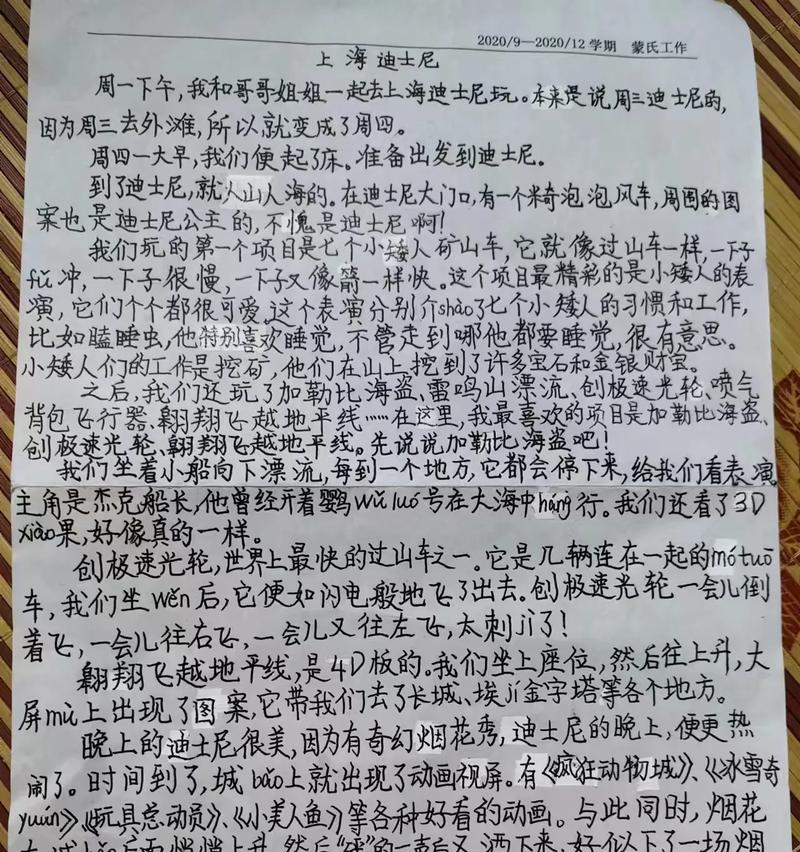 2020/9—2020/12 学期 蒙氏工作
上海迪士尼
周一下午，我和哥哥姐姐一起去上海迪士尼玩。本来是说周三迪士尼的，
因为周三去外滩，所以就变成了周四。
周四一大早，我们便起了床。准备出发到迪士尼。
到了迪士尼，就人山人海的。在迪士尼大门口，有一个米奇泡泡风车，周围的图
案也是迪士尼公主的，不愧是迪士尼啊！
我们玩的第一个项目是七个小矮人矿山车，它就像过山车一样，一下子
fǔ冲，一下子很慢，一下子又像箭一样快。这个项目最精彩的是小矮人的表
演，它们个个都很可爱。这个表演分别介shào了七个小矮人的习惯和工作，
比如瞌睡虫，他特别喜欢睡觉，不管走到哪他都要睡觉，很有意思。
小矮人们的工作是挖矿，他们在山上挖到了许多宝石和金银财宝。
之后，我们还玩了加勒比海盗、雷鸣山漂流、创极速光轮、喷气
背包飞行器、翱翔飞越地平线……在这里，我最喜欢的项目是加勒比海盗、
创极速光轮、翱翔飞越地平线。先说说加勒比海盗吧！
我们坐着小船向下漂流，每到一个地方，它都会停下来，给我们看表演。
主角是杰克船长，他曾经开着鹦wǔ luó号在大海中háng行。我们还看了3D
xiào果，好像真的一样。
创极速光轮，世界上最快的过山车之一。它是几辆连在一起的mótuō
车，我们坐wěn后，它便如闪电般地飞了出去。创极速光轮一会儿倒
着飞，一会儿往右飞，一会儿又往左飞，太刺jī了！
翱翔飞越地平线，是4D板的。我们坐上座位，然后往上升，大
屏mù上出现了图案，它带我们去了长城、埃jí金字塔等各个地方。
晚上的迪士尼很美，因为有奇幻烟花秀，迪士尼的晚上，便更热
闹了。时间到了，城bǎo上就出现了动画视屏。有《疯狂动物城》、《冰雪奇
yuán》《玩具总动员》、《小美人鱼》等各种好看的动画。与此同时，烟花
在城bǎo后面悄悄上升，然后“砰”的一声后又洒下来，好似下了一场烟